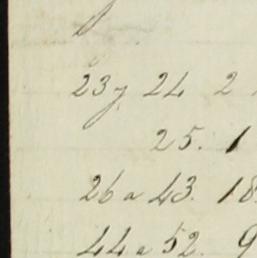 23 y 24 2
25. 1
26 a 43. 18
44 a 52. 9